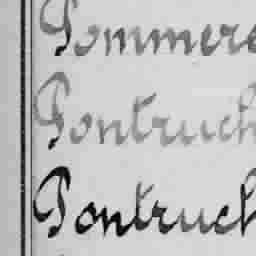 Pommere
Pontruch
Pontruch